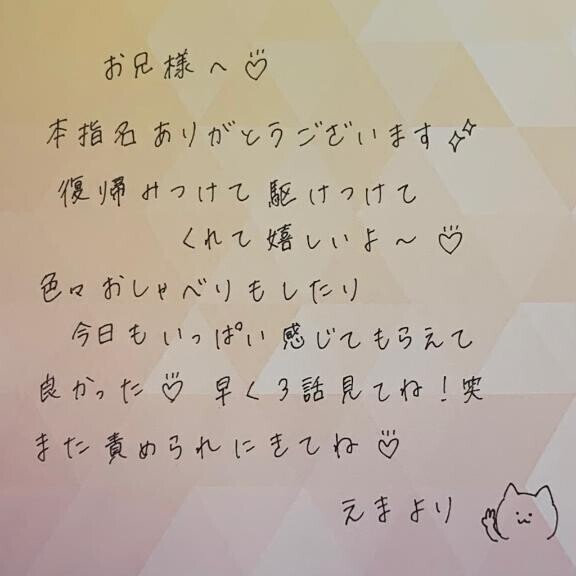 お兄様へ♡
本指名ありがとうございます✨
復帰みつけて駆けつけて
くれて嬉しいよ～♡
色々おしゃべりもしたり
今日もいっぱい感じてもらえて
良かった♡ 早く3話見てね！笑
また責められにきてね♡
えまより